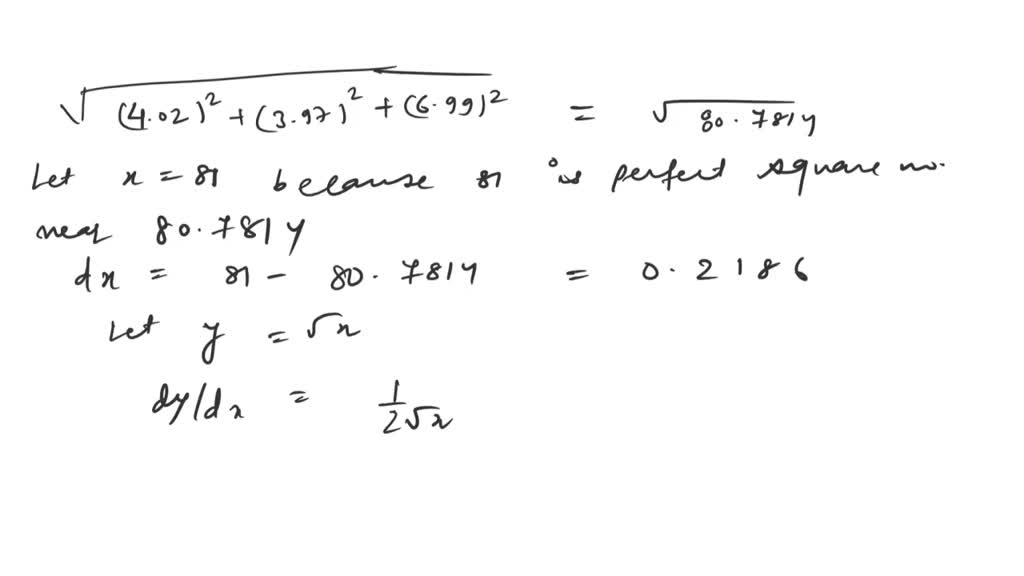 √((4.02)² + (3.97)² + (6.99)²) = √80.7814
Let x = 81 because 81 is perfect square no.
near 80.7814
dx = 81 - 80.7814 = 0.2186
Let y = √x
dy/dx = 1/2√x